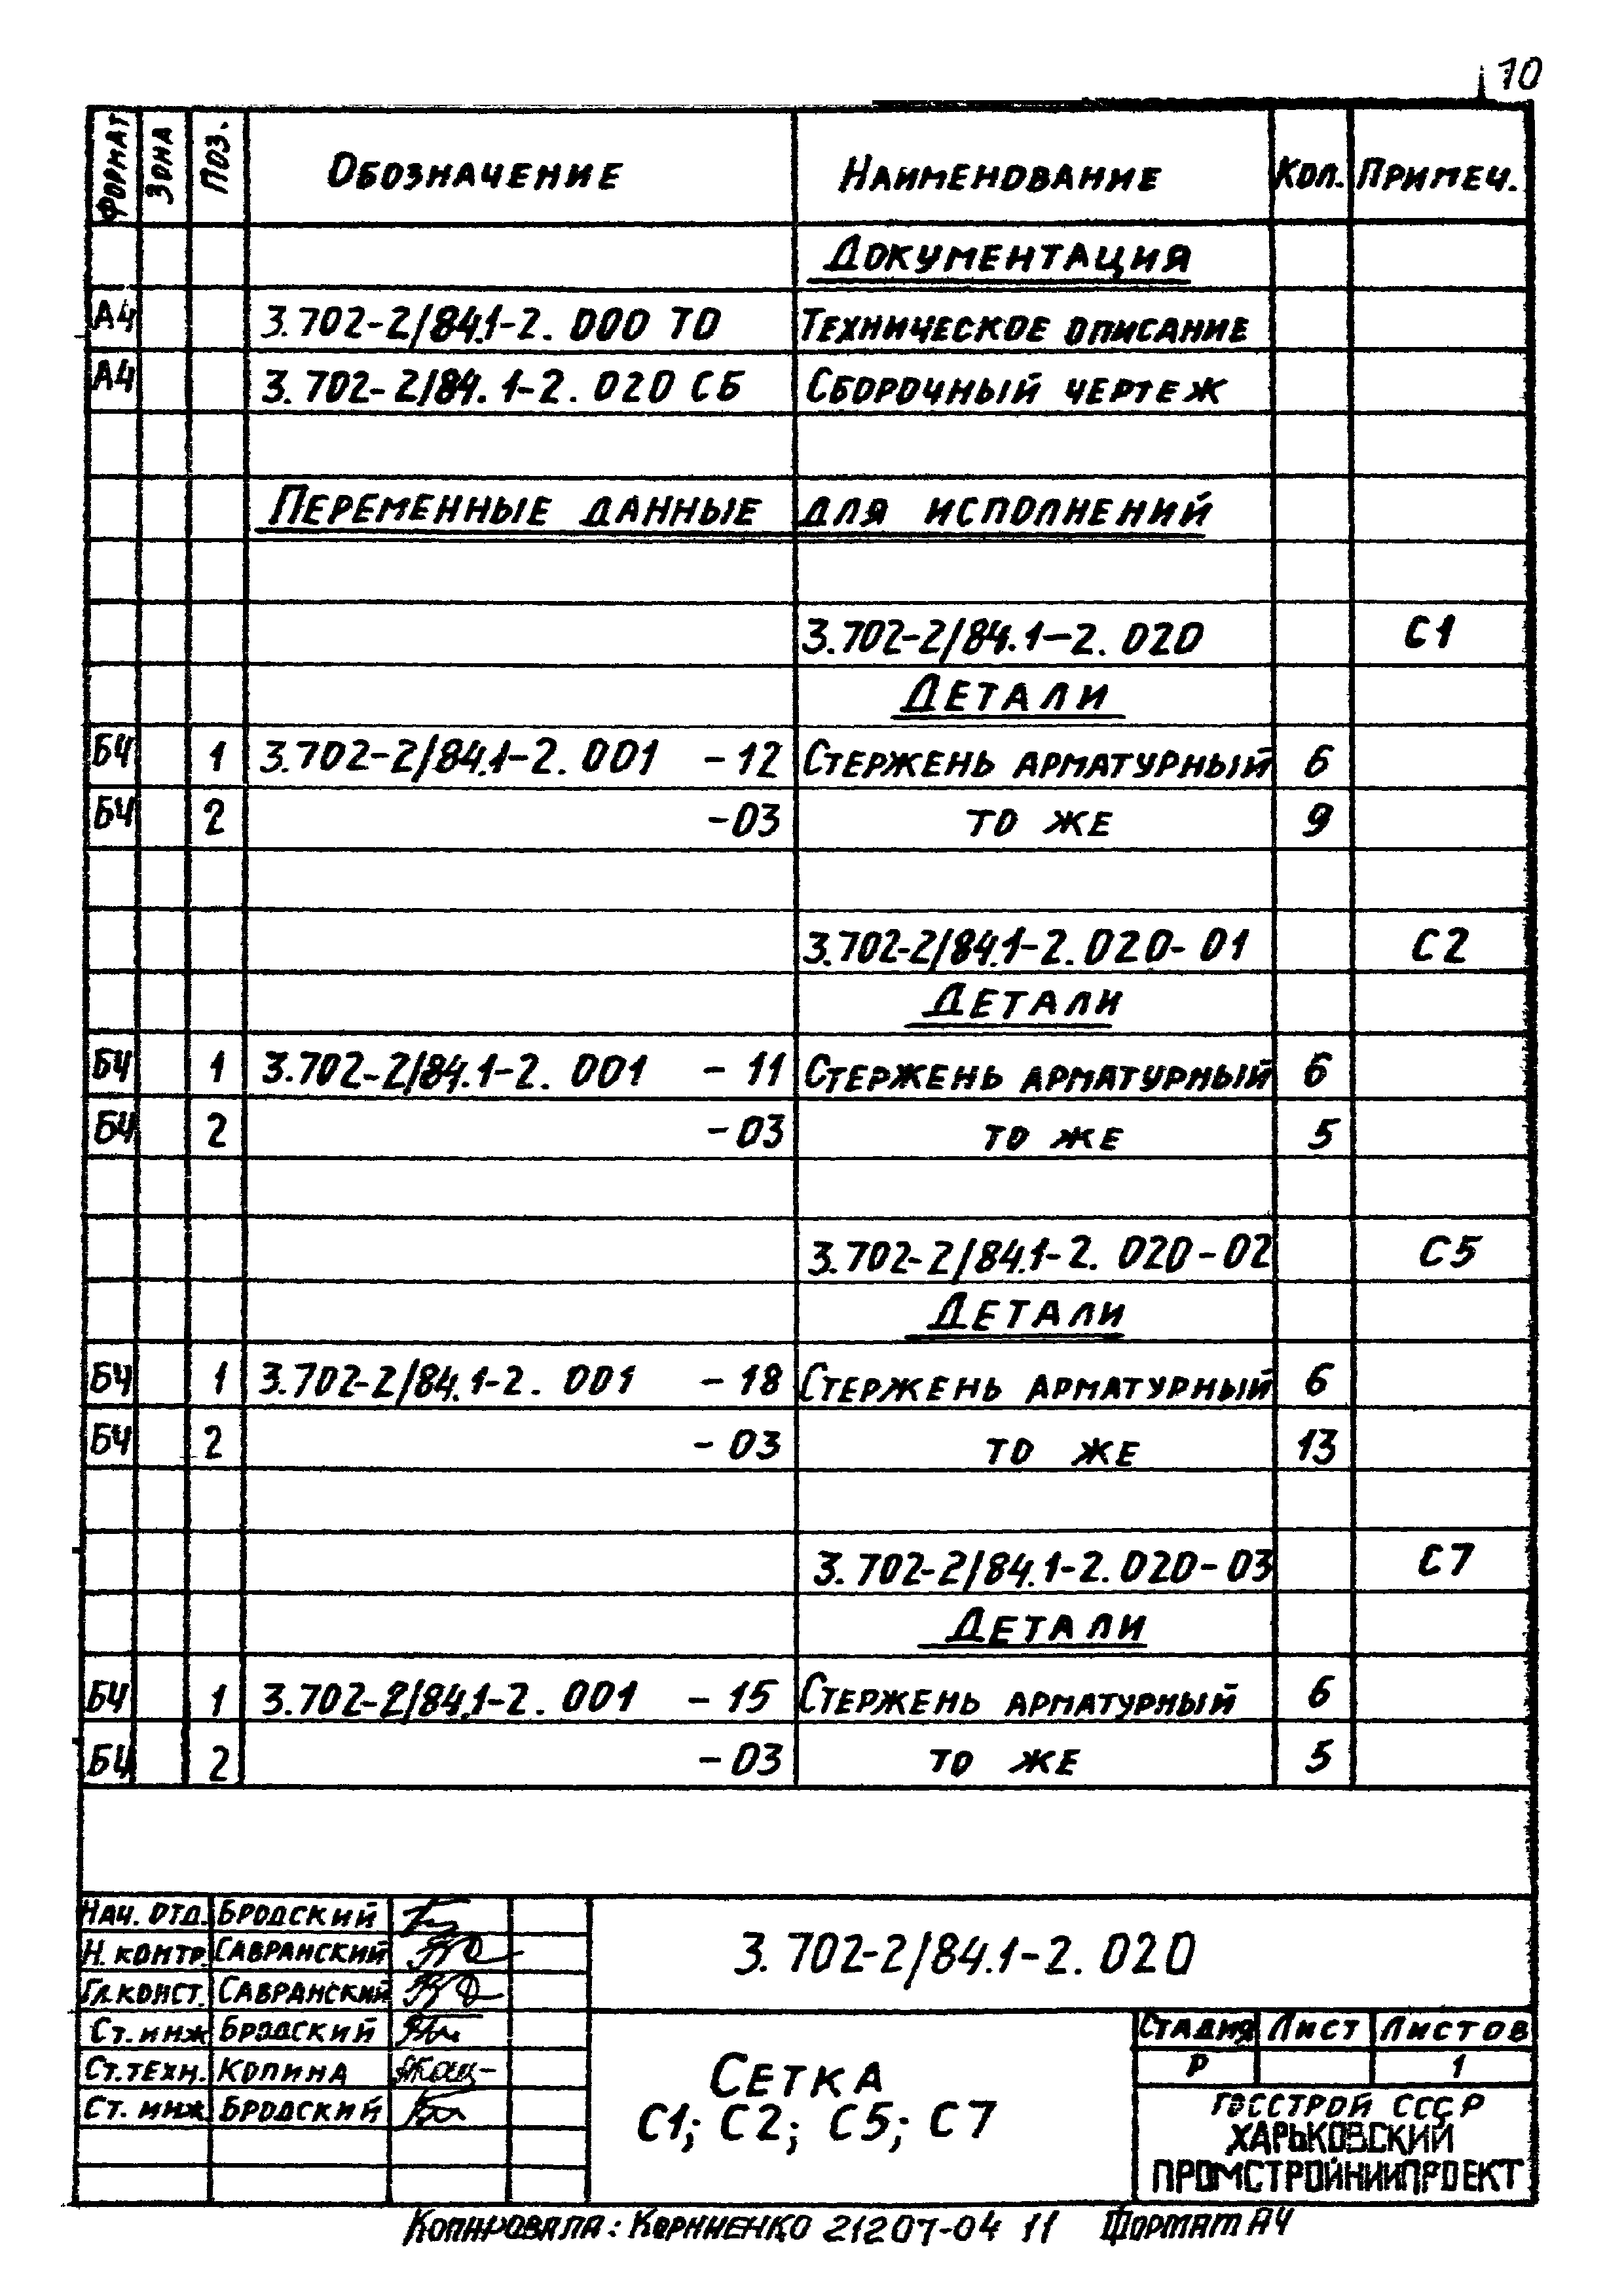 10
Формат Зона Поз. Обозначение Наименование Кол. Примеч.
Документация
А4 3.702-2/84.1-2.000 ТО Техническое описание
А4 3.702-2/84.1-2.020 СБ Сборочный чертеж
Переменные данные для исполнений
3.702-2/84.1-2.020 С1
Детали
БЧ 1 3.702-2/84.1-2.001 -12 Стержень арматурный 6
БЧ 2 -03 то же 9
3.702-2/84.1-2.020-01 С2
Детали
БЧ 1 3.702-2/84.1-2.001 -11 Стержень арматурный 6
БЧ 2 -03 то же 5
3.702-2/84.1-2.020-02 С5
Детали
БЧ 1 3.702-2/84.1-2.001 -18 Стержень арматурный 6
БЧ 2 -03 то же 13
3.702-2/84.1-2.020-03 С7
Детали
БЧ 1 3.702-2/84.1-2.001 -15 Стержень арматурный 6
БЧ 2 -03 то же 5
Нач. отд. Бродский
Н. контр. Савранский
Гл. конст. Савранский
Ст. инж Бродский
Ст. техн. Копина
Ст. инж. Бродский
3.702-2/84.1-2.020
Сетка
С1; С2; С5; С7
Стадия Лист Листов
Р 1
Госстрой СССР
ХАРЬКОВСКИЙ
ПРОМСТРОЙНИИПРОЕКТ
Копировала: Корниенко 21207-04 11 Формат А4